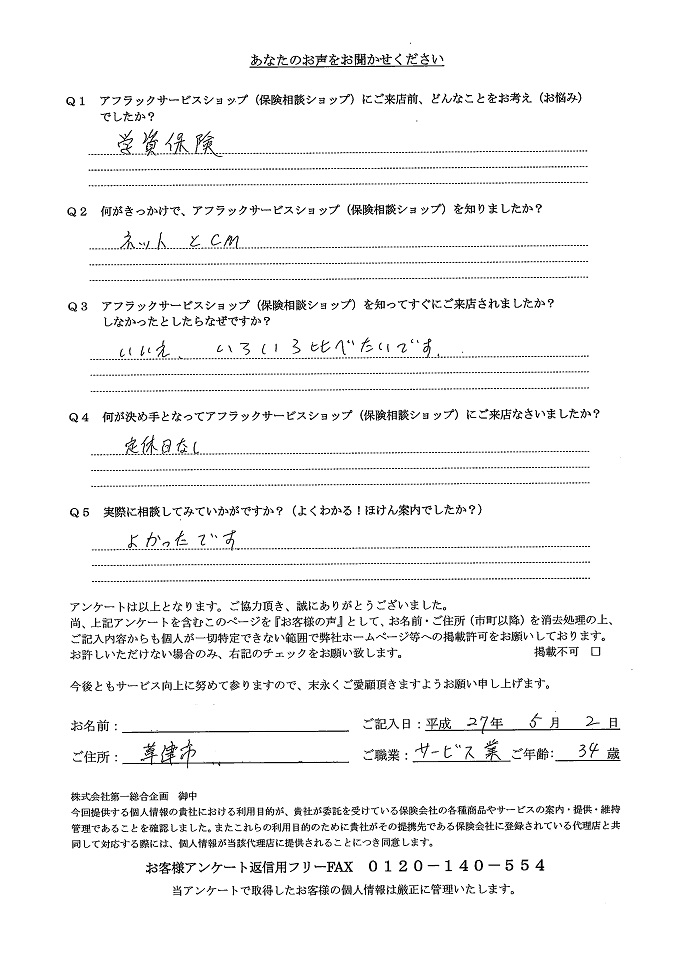 あなたのお声をお聞かせください
Q1 アフラックサービスショップ（保険相談ショップ）にご来店前、どんなことをお考え（お悩み）
でしたか？
学資保険
Q2 何がきっかけで、アフラックサービスショップ（保険相談ショップ）を知りましたか？
ネットとCM
Q3 アフラックサービスショップ（保険相談ショップ）を知ってすぐにご来店されましたか？
しなかったとしたらなぜですか？
いいえ、いろいろ比べたいです。
Q4 何が決め手となってアフラックサービスショップ（保険相談ショップ）にご来店なさいましたか？
定休日なし
Q5 実際に相談してみていかがですか？（よくわかる！ほけん案内でしたか？）
よかったです
アンケートは以上となります。ご協力頂き、誠にありがとうございました。
尚、上記アンケートを含むこのページを『お客様の声』として、お名前・ご住所（市町以降）を消去処理の上、
ご記入内容からも個人が一切特定できない範囲で弊社ホームページ等への掲載許可をお願いしております。
お許しいただけない場合のみ、右記のチェックをお願い致します。 掲載不可 □
今後ともサービス向上に努めて参りますので、末永くご愛顧頂きますようお願い申し上げます。
お名前： ご記入日：平成 27年 5月 2日
ご住所： 草津市 ご職業：サービス業 ご年齢： 34歳
株式会社第一総合企画 御中
今回提供する個人情報の貴社における利用目的が、貴社が委託を受けている保険会社の各種商品やサービスの案内・提供・維持
管理であることを確認しました。またこれらの利用目的のために貴社がその提携先である保険会社に登録されている代理店と共
同して対応する際には、個人情報が当該代理店に提供されることにつき同意します。
お客様アンケート返信用フリーFAX 0120－140－554
当アンケートで取得したお客様の個人情報は厳正に管理いたします。